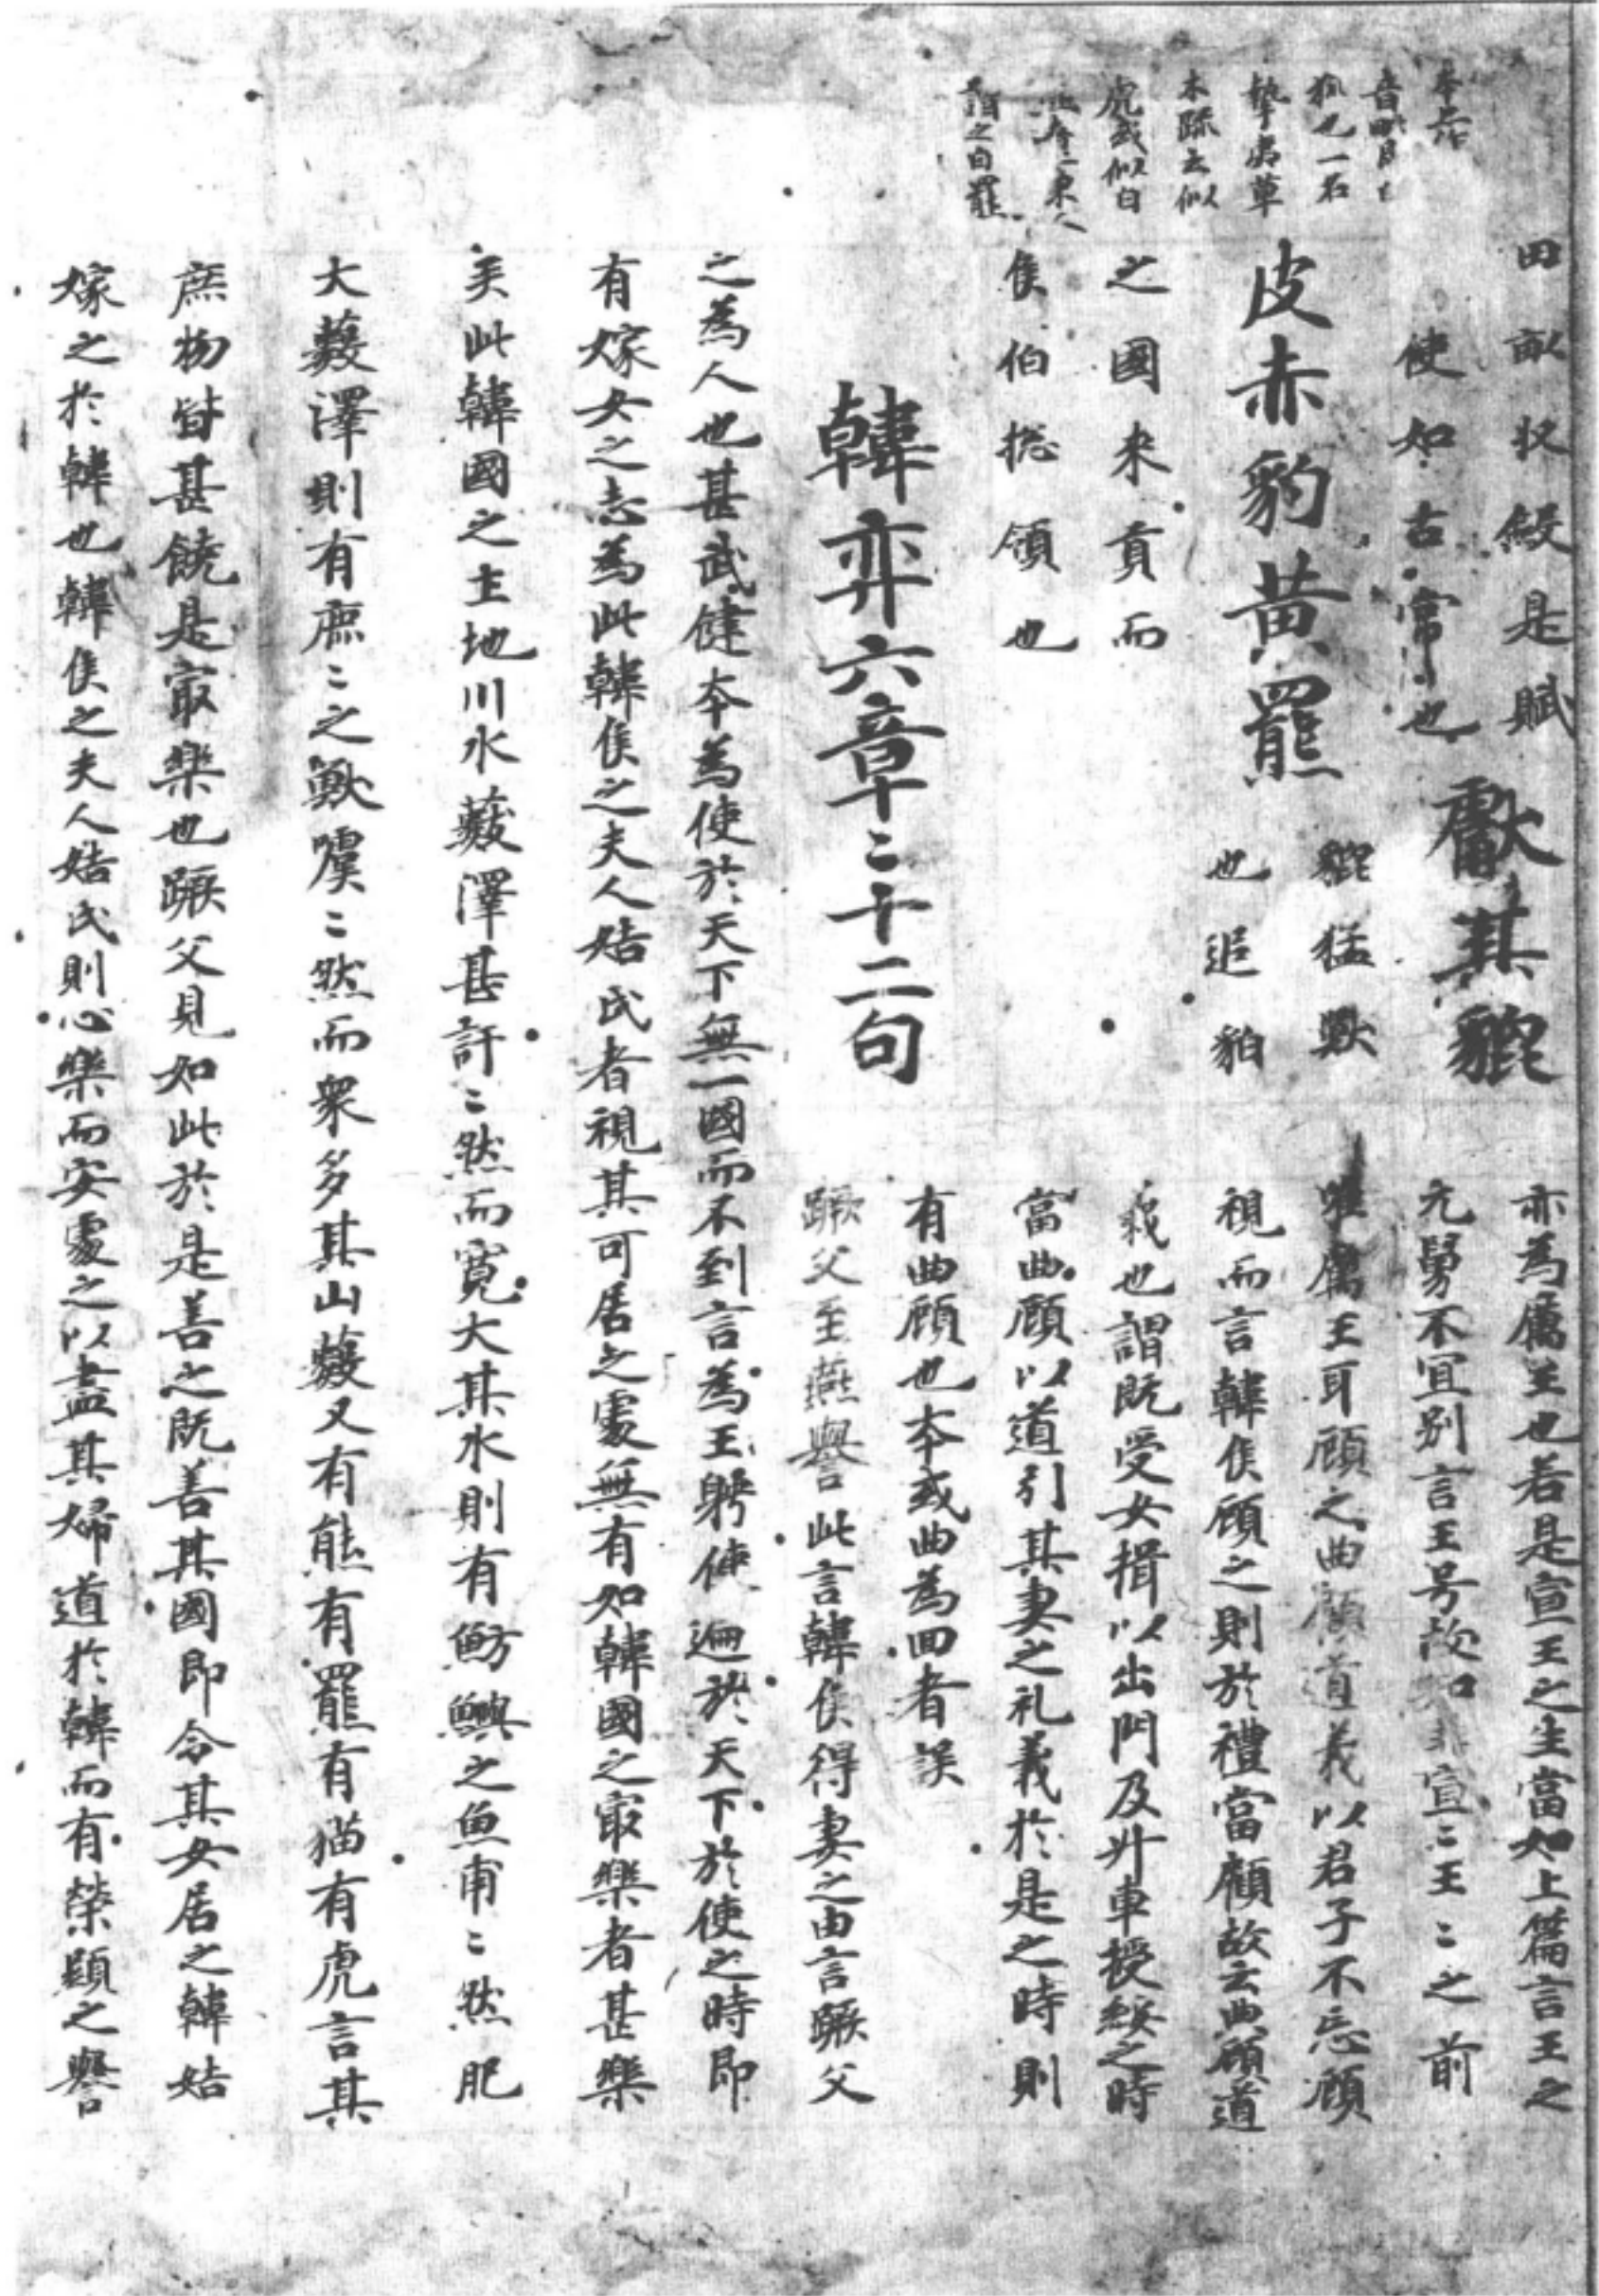 田畝收斂是賦
使如古常也
獻其貔
皮赤豹黃羆
貔猛獸
也追貊
之國來貢而
侯伯捴領也
韓弈六章〻十二句
狐也一名
執夷草
木疏云似
虎或似白
謂之白羆
亦為厲王也若是宣王之生當如上篇言王之
元舅不宜別言王号故知非宣〻王〻之前
唯厲王耳顧之曲顧道義以君子不忘顧
視而言韓侯顧之則於禮當顧故云曲顧道
義也謂既受女揖以出門及升車授綏之時
當曲顧以道引其妻之礼義於是之時則
有曲顧也本或曲為回者誤
蹶父至燕譽此言韓侯得妻之由言蹶父
之為人也甚武健本為使於天下無一國而不到言為王躬使遍於天下於使之時即
有嫁女之志為此韓侯之夫人姞氏者視其可居之處無有如韓國之㝡樂者甚樂
矣此韓國之土地川水藪澤甚訏〻然而寬大其水則有魴鱮之魚甫〻然肥
大藪澤則有麀〻之獸噳〻然而衆多其山藪又有熊有羆有猫有虎言其
庶物皆甚饒是㝡樂也蹶父見如此於是善之既善其國即令其女居之韓姞
嫁之於韓也韓侯之夫人姞氏則心樂而安處之以盡其婦道於韓而有榮顯之譽